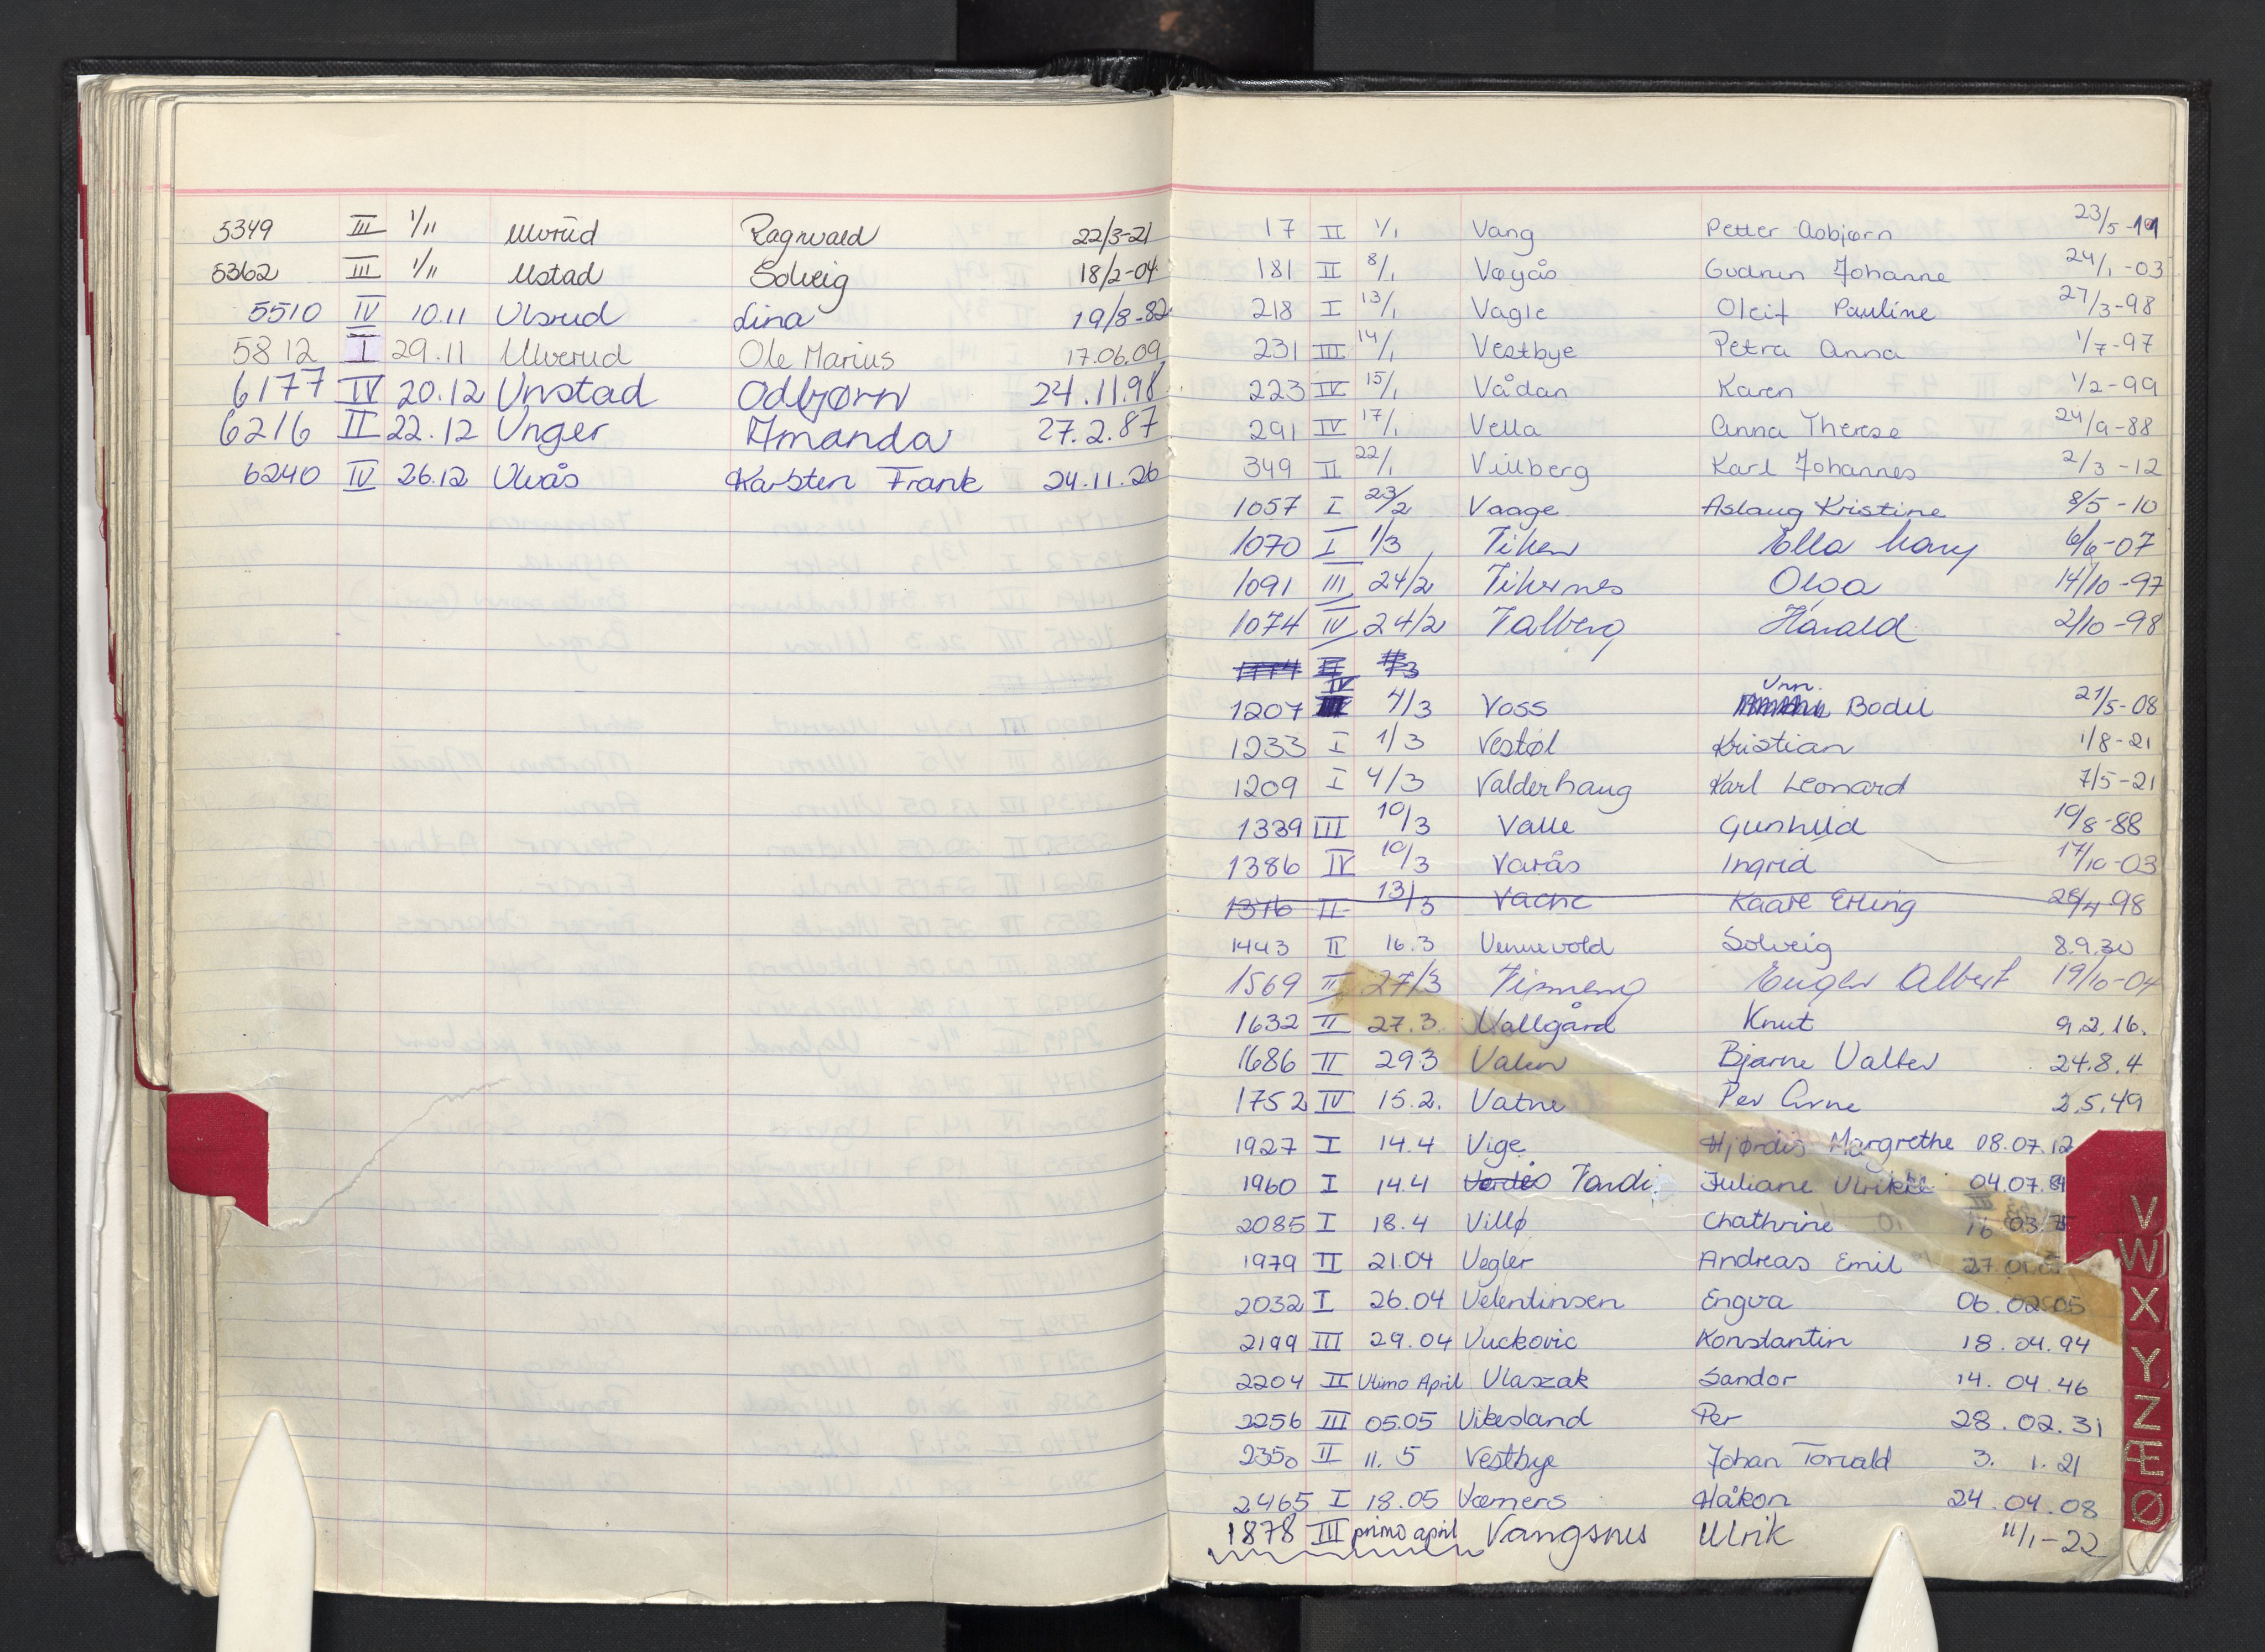 5349 III 1/11 Ulvrud Ragnvald 22/3-21
5362 III 1/11 Ustad Solveig 18/2-04
5510 IV 10.11 Ulsrud Lina 19/8-82
5812 I 29.11 Ulverud Ole Marius 17.06.09
6177 IV 20.12 Unstad Odbjørn 24.11.98
6216 II 22.12 Unger Amanda 27.2.87
6240 IV 26.12 Ulvås Karsten Frank 24.11.26
17 II 1/1 Vang Petter Asbjørn 23/5-19
181 II 8/1 Vøyås Gudrun Johanne 24/1-03
218 I 13/1 Vagle Oleif Pauline 27/3-98
231 III 14/1 Vestbye Petra Anna 1/7-97
223 IV 15/1 Vådan Karen 1/2-99
291 IV 17/1 Vella Anna Therese 24/9-88
349 II 22/1 Villberg Karl Johannes 2/3-12
1057 I 23/2 Vaage Aslaug Kristine 8/5-10
1070 I 1/3 Viken Ella Mary 6/6-07
1091 III 24/2 Vikernes Olga 14/10-97
1074 IV 24/2 Valberg Harald 2/10-98
IV Unn
1207 4/3 Voss Bodil 21/5-08
1233 I 1/3 Vestøl Kristian 1/8-21
1209 I 4/3 Valderhaug Karl Leonard 7/5-21
1339 III 10/3 Valle Gunhild 10/8-88
1386 IV 10/3 Varås Ingrid 17/10-03
1376 II 13/3 Vachc Kaare Erling 28/4 98
1443 II 16.3 Vennevold Solveig 8.9.30
1569 II 27/3 Eugen Albert 19/10-04
1632 II 27.3. Vallgård Knut 9.2.16.
1686 II 29.3 Valen Bjarne Valter 24.8.4
1752 IV 15.2. Vatne Per Arne 2.5.49
1927 I 14.4 Vige Hjørdis Margrethe 08.07.12
1960 I 14.4 Verdes Vardi Juliane Ulrikke 04.07.89
2085 I 18.4 Villø Chathrine 16 03
1979 II 21.04 Vegler Andreas Emil 27.01
2032 I 26.04 Velentinsen Engva 06.02.05
2199 III 29.04 Vuckovic Konstantin 18.04.94
2204 II Ultimo April Vlaszak Sandor 14.04.46
2256 III 05.05 Vikesland Per 28.02.31
2350 II 11.5 Vestbye Johan Torvald 3.1.21
2465 I 18.05 Værners Håkon 24.04.08
1878 III primo april Vangsnes Ulrik 11/1-22
V
W
X
Y
Z
Æ
Ø